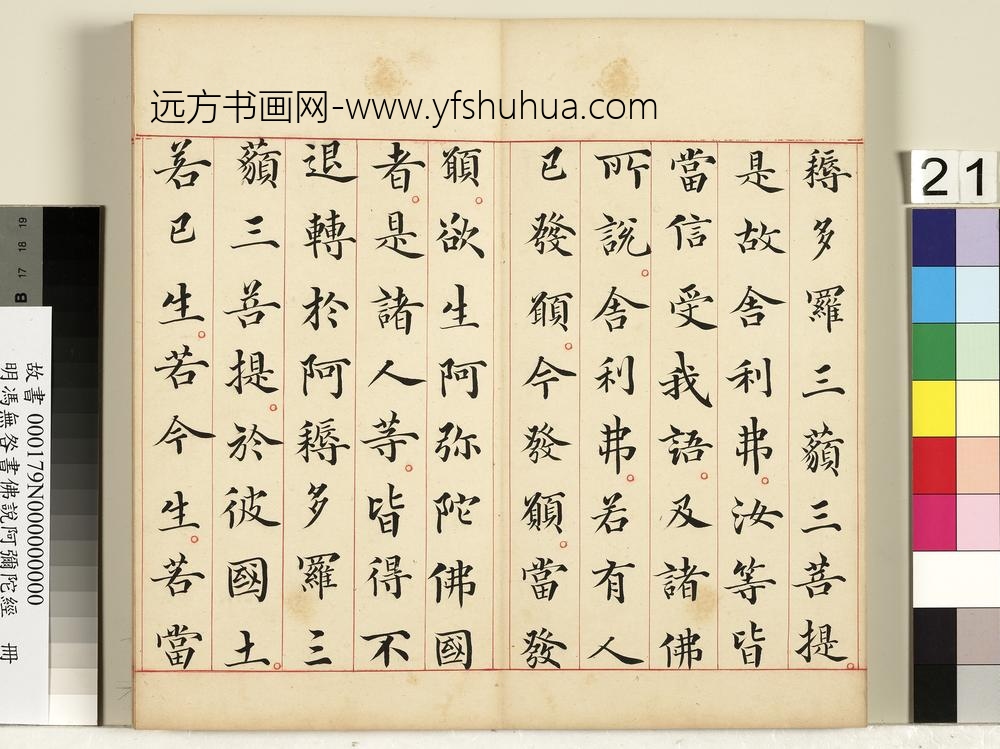 远方书画网-www.yfshuhua.com
耨多羅三藐三菩提
是故舍利弗汝等皆
當信受我語及諸佛
所說舍利弗若有人
已發願今發願當發
願欲生阿弥陀佛國
者是諸人等皆得不
退轉於阿耨多羅三
藐三菩提於彼國土
若已生若今生若當
21
19
18
17
B
故書 000179N000000000
明馮無咎書佛說阿彌陀經 冊